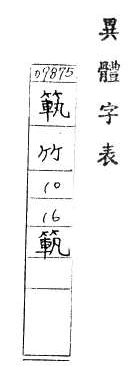 異體字表
09875
竹
10
16